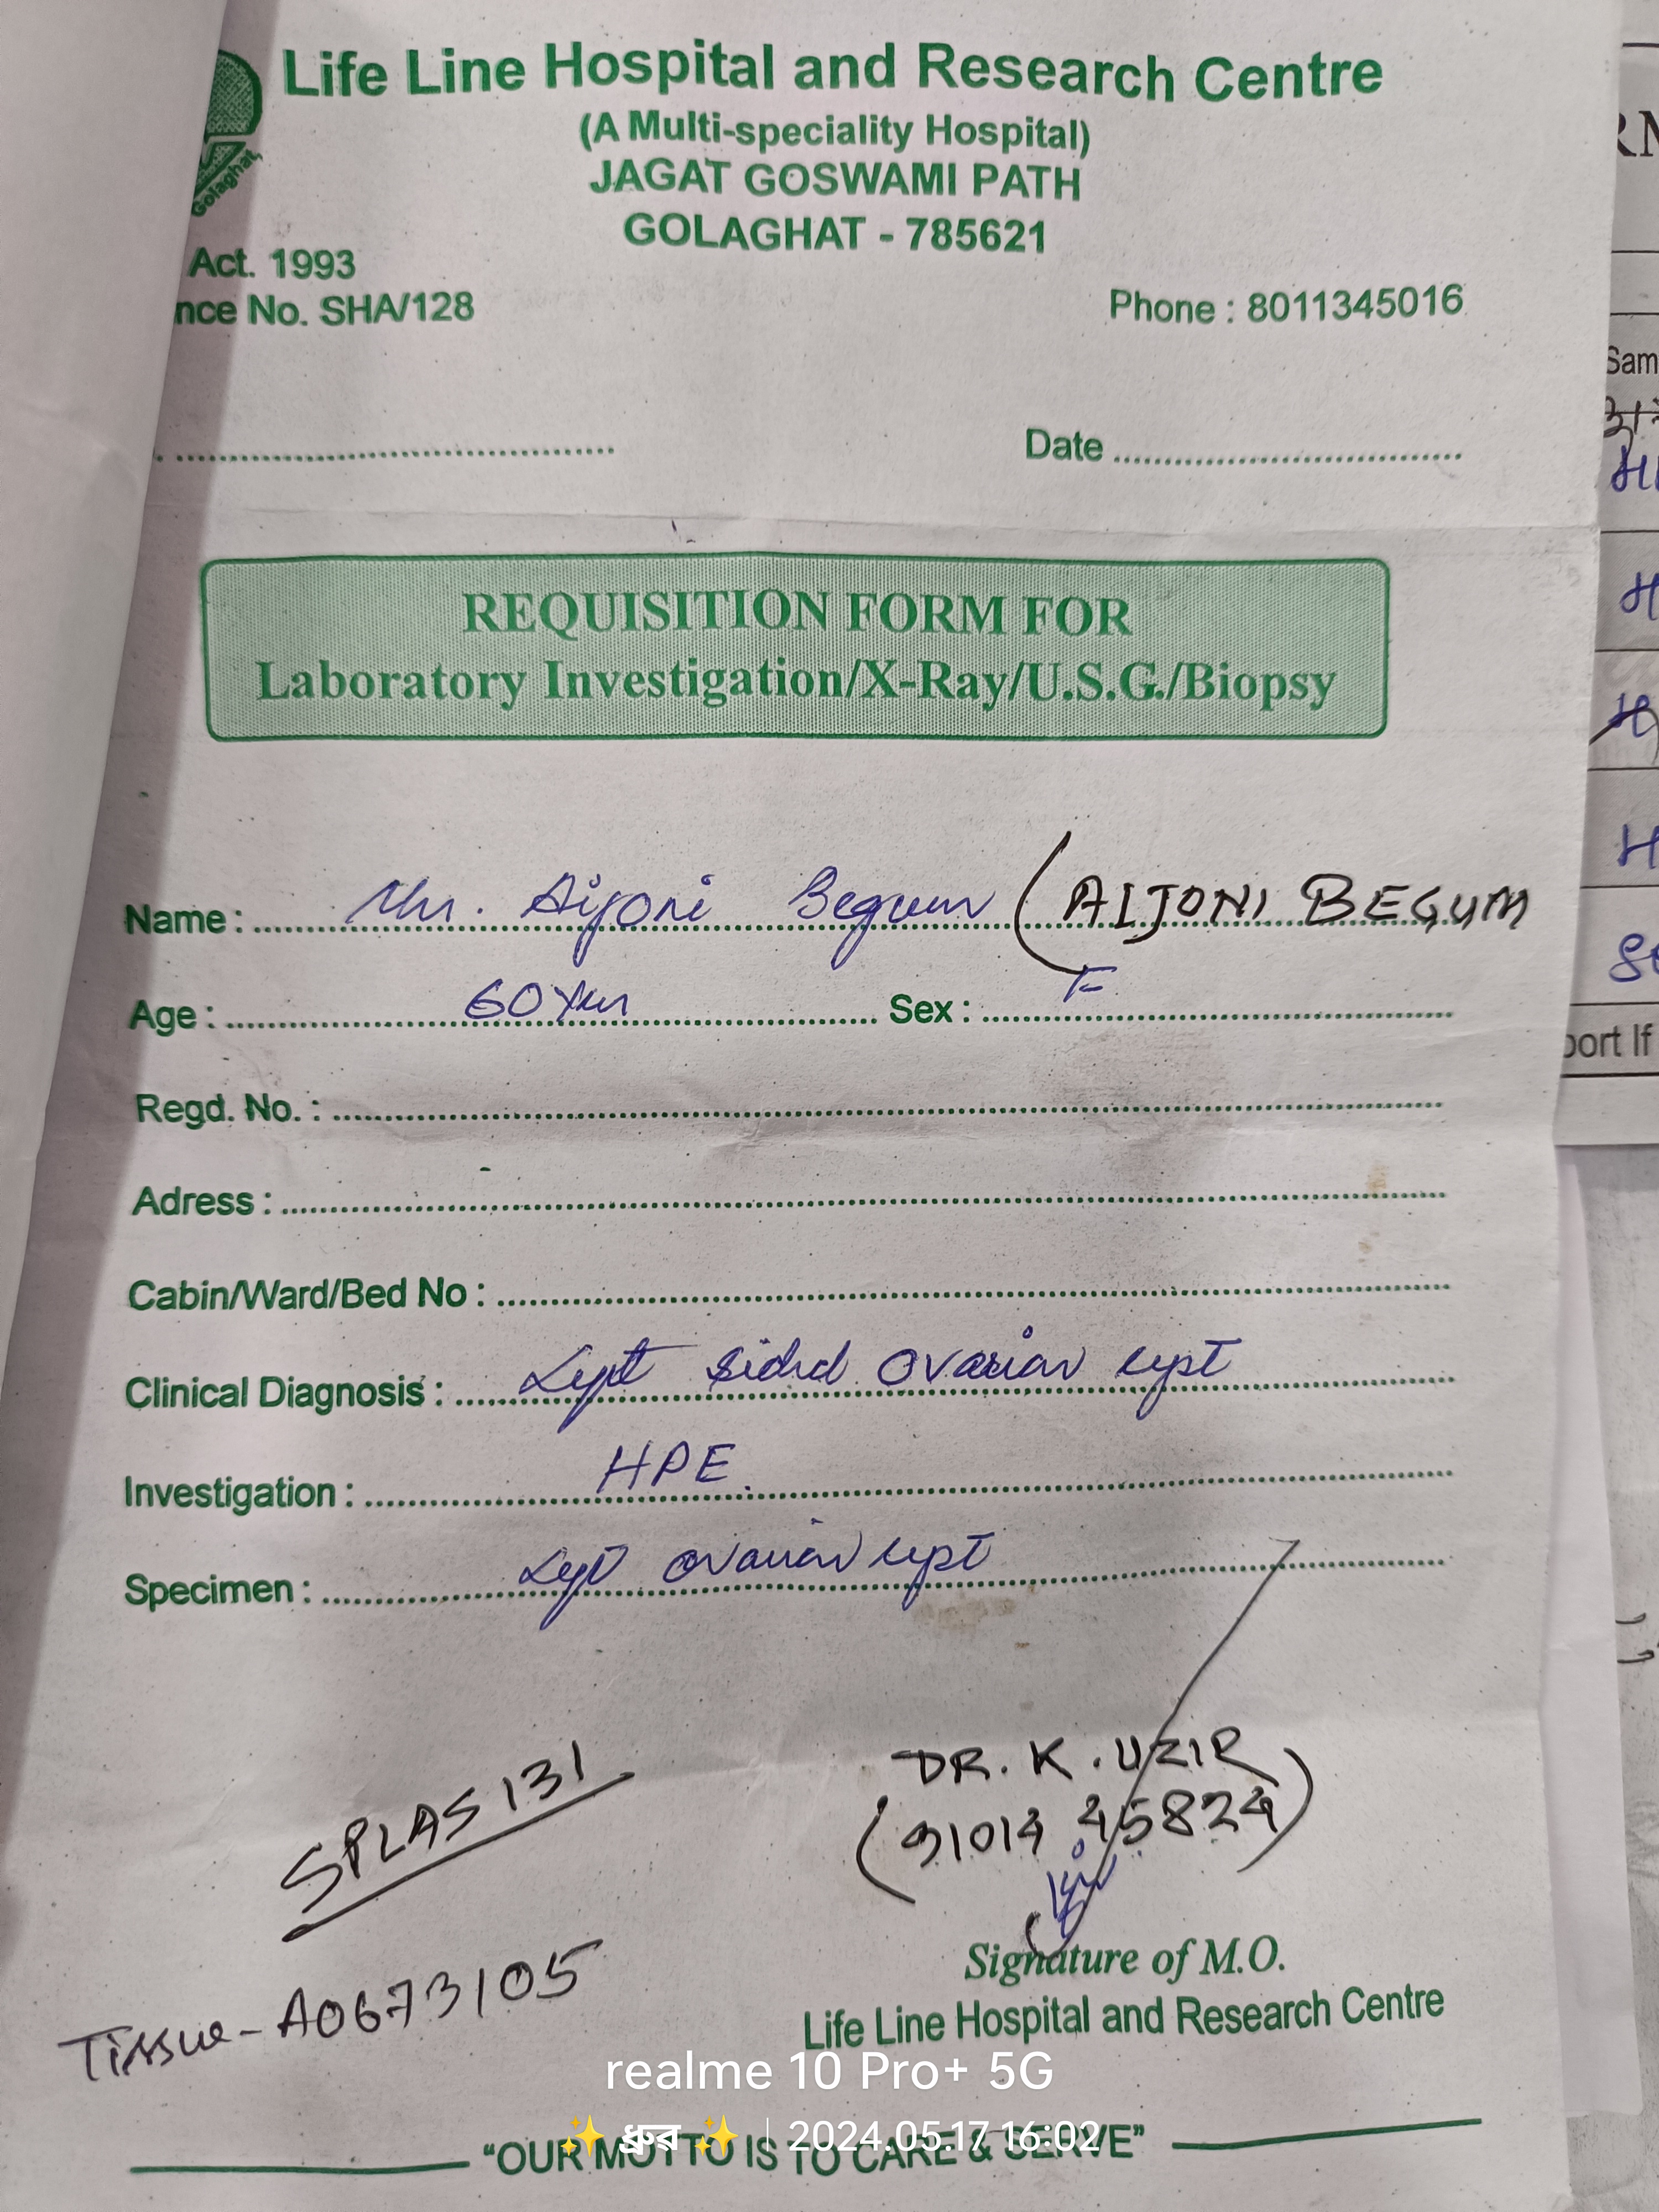 Life Line Hospital and Research Centre
(A Multi-speciality Hospital)
JAGAT GOSWAMI PATH
GOLAGHAT - 785621
Golaghat,
Act. 1993
nce No. SHA/128
Phone : 8011345016
Date
REQUISITION FORM FOR
Laboratory Investigation/X-Ray/U.S.G./Biopsy
Name : Aijoni Begum (AIJONI BEGUM
Age : 60 Sex : F
Regd. No. :
Adress :
Cabin/Ward/Bed No :
Clinical Diagnosis : Left sided ovarian cyst
Investigation : HPE.
Specimen : Left ovarian cyst
SPLAS131
DR. K. UZIR
Tissue - A0673105
Signature of M.O.
Life Line Hospital and Research Centre
realme 10 Pro+ 5G
✨ ধ্রুব ✨ | 2024.05.17 16:02
"OUR MOTTO IS TO CARE & SERVE"
Sam
port If